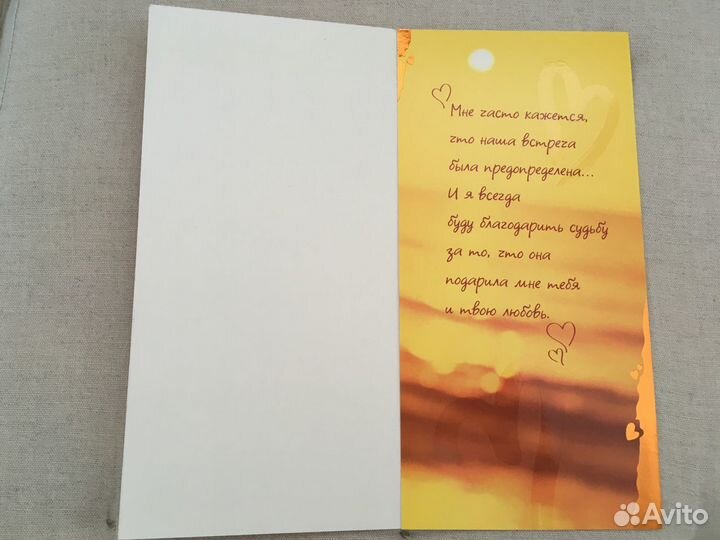 Мне часто кажется,
что наша встреча
была предопределена...
И я всегда
буду благодарить судьбу
за то, что она
подарила мне тебя
и твою любовь.
Avito